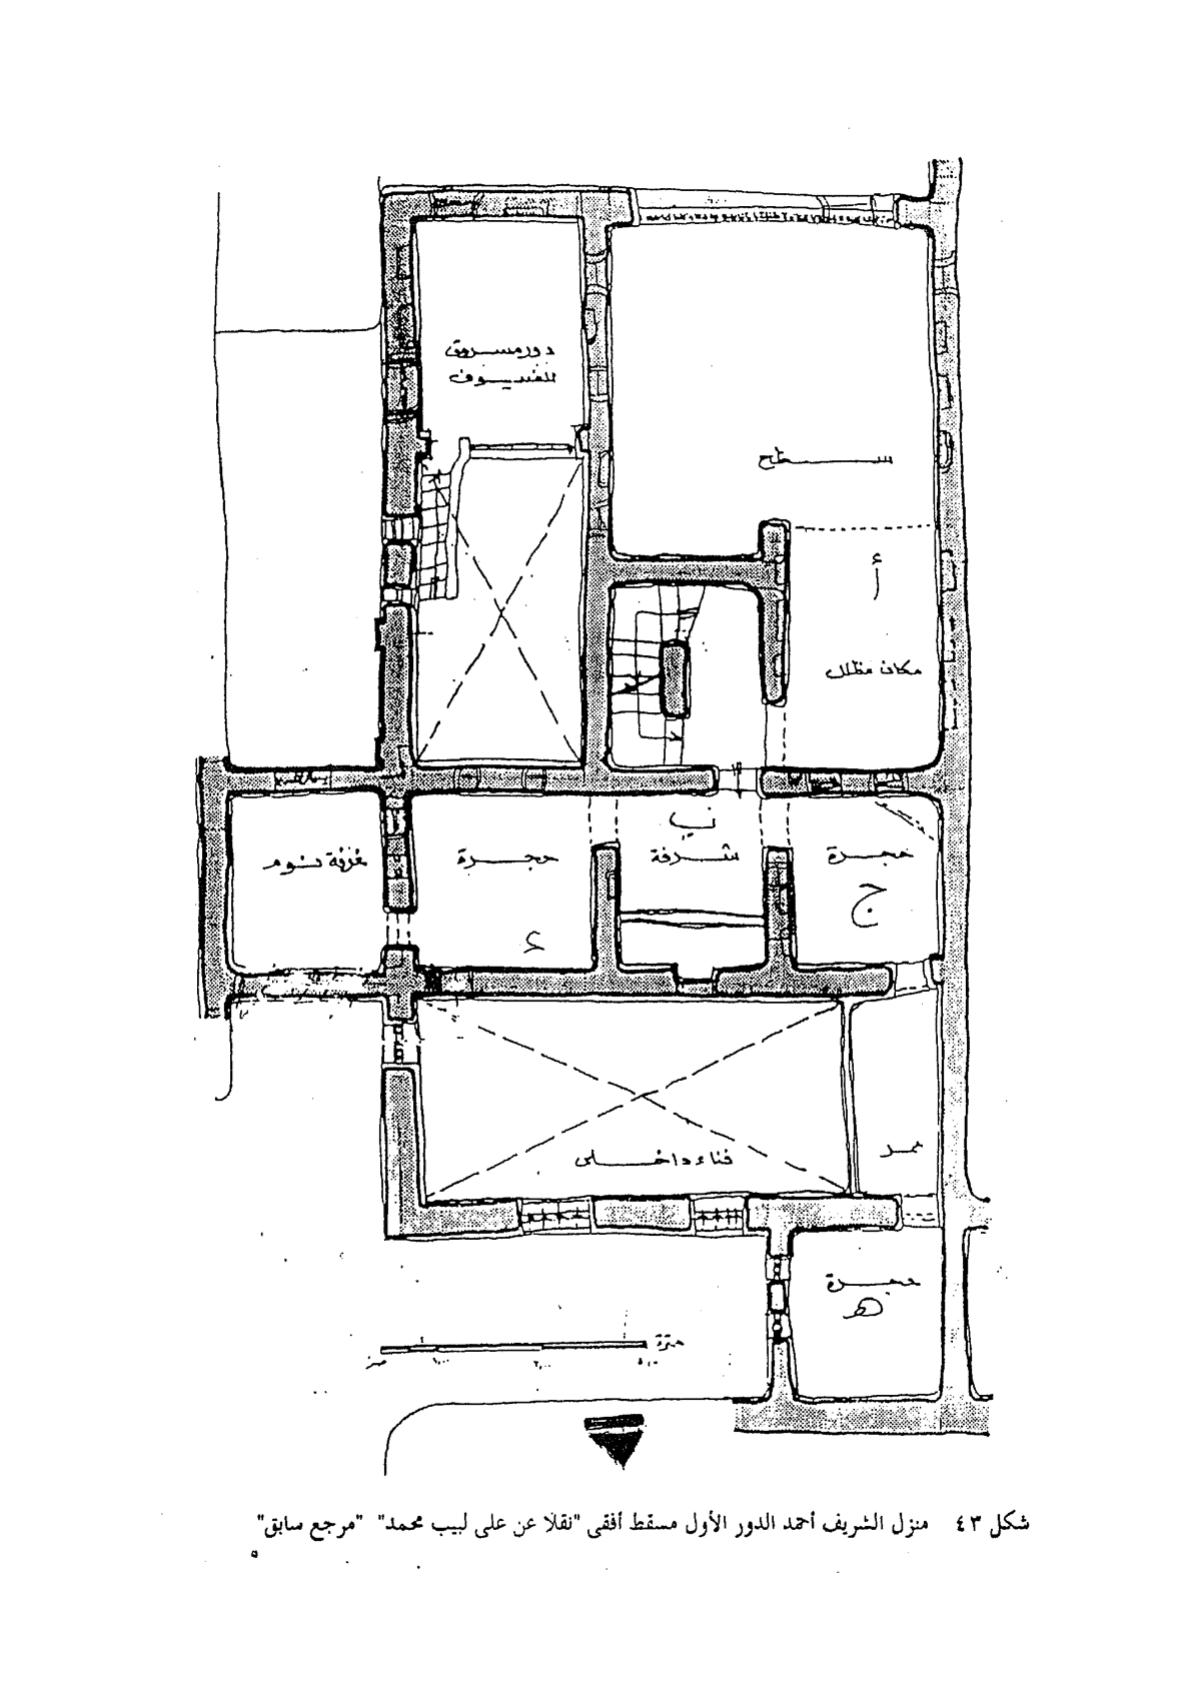 دور مسروق
للضيوف
سطح
أ
مكان مظلل
ب
شرفة
حجرة
ج
حجرة
ء
غرفة نوم
فناء داخلى
ممر
حجرة
هـ
شكل ٤٣ منزل الشريف أحمد الدور الأول مسقط أفقى "نقلا عن على لبيب محمد" "مرجع سابق"